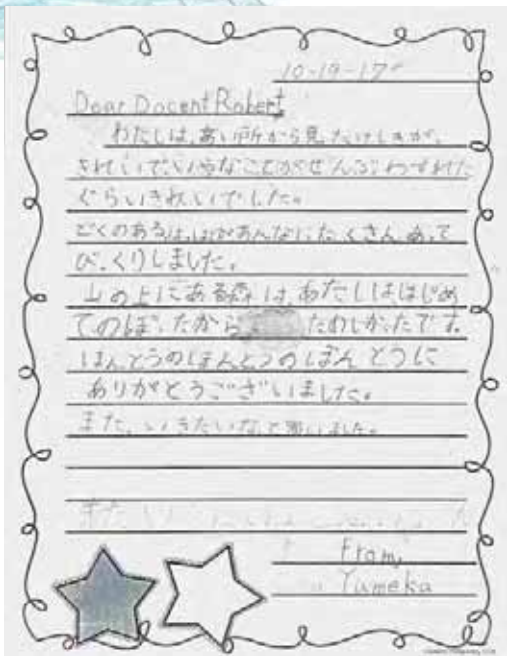 10-19-17
Dear Docent Robert
わたしは、高い所から見たけしきが、
きれいで、いろなことがぜんぶわすれた
ぐらいきれいでした。
どくのあるはっぱがあんなにたくさんあって
びっくりしました。
山の上にある森は、あたしははじめ
てのぼったから たのしかったです。
ほんとうのほんとうのほんとうに
ありがとうございました。
また、いきたいなと思いました。
From,
Yumeka